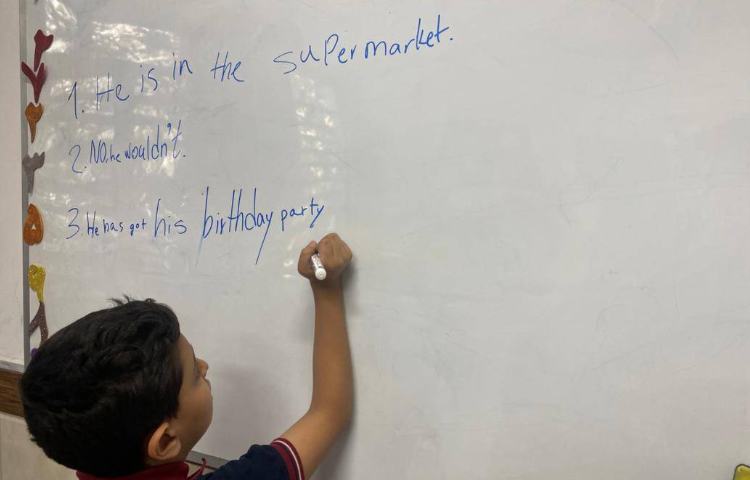 1. He is in the supermarket.
2. No, he wouldn't.
3. He has got his birthday party